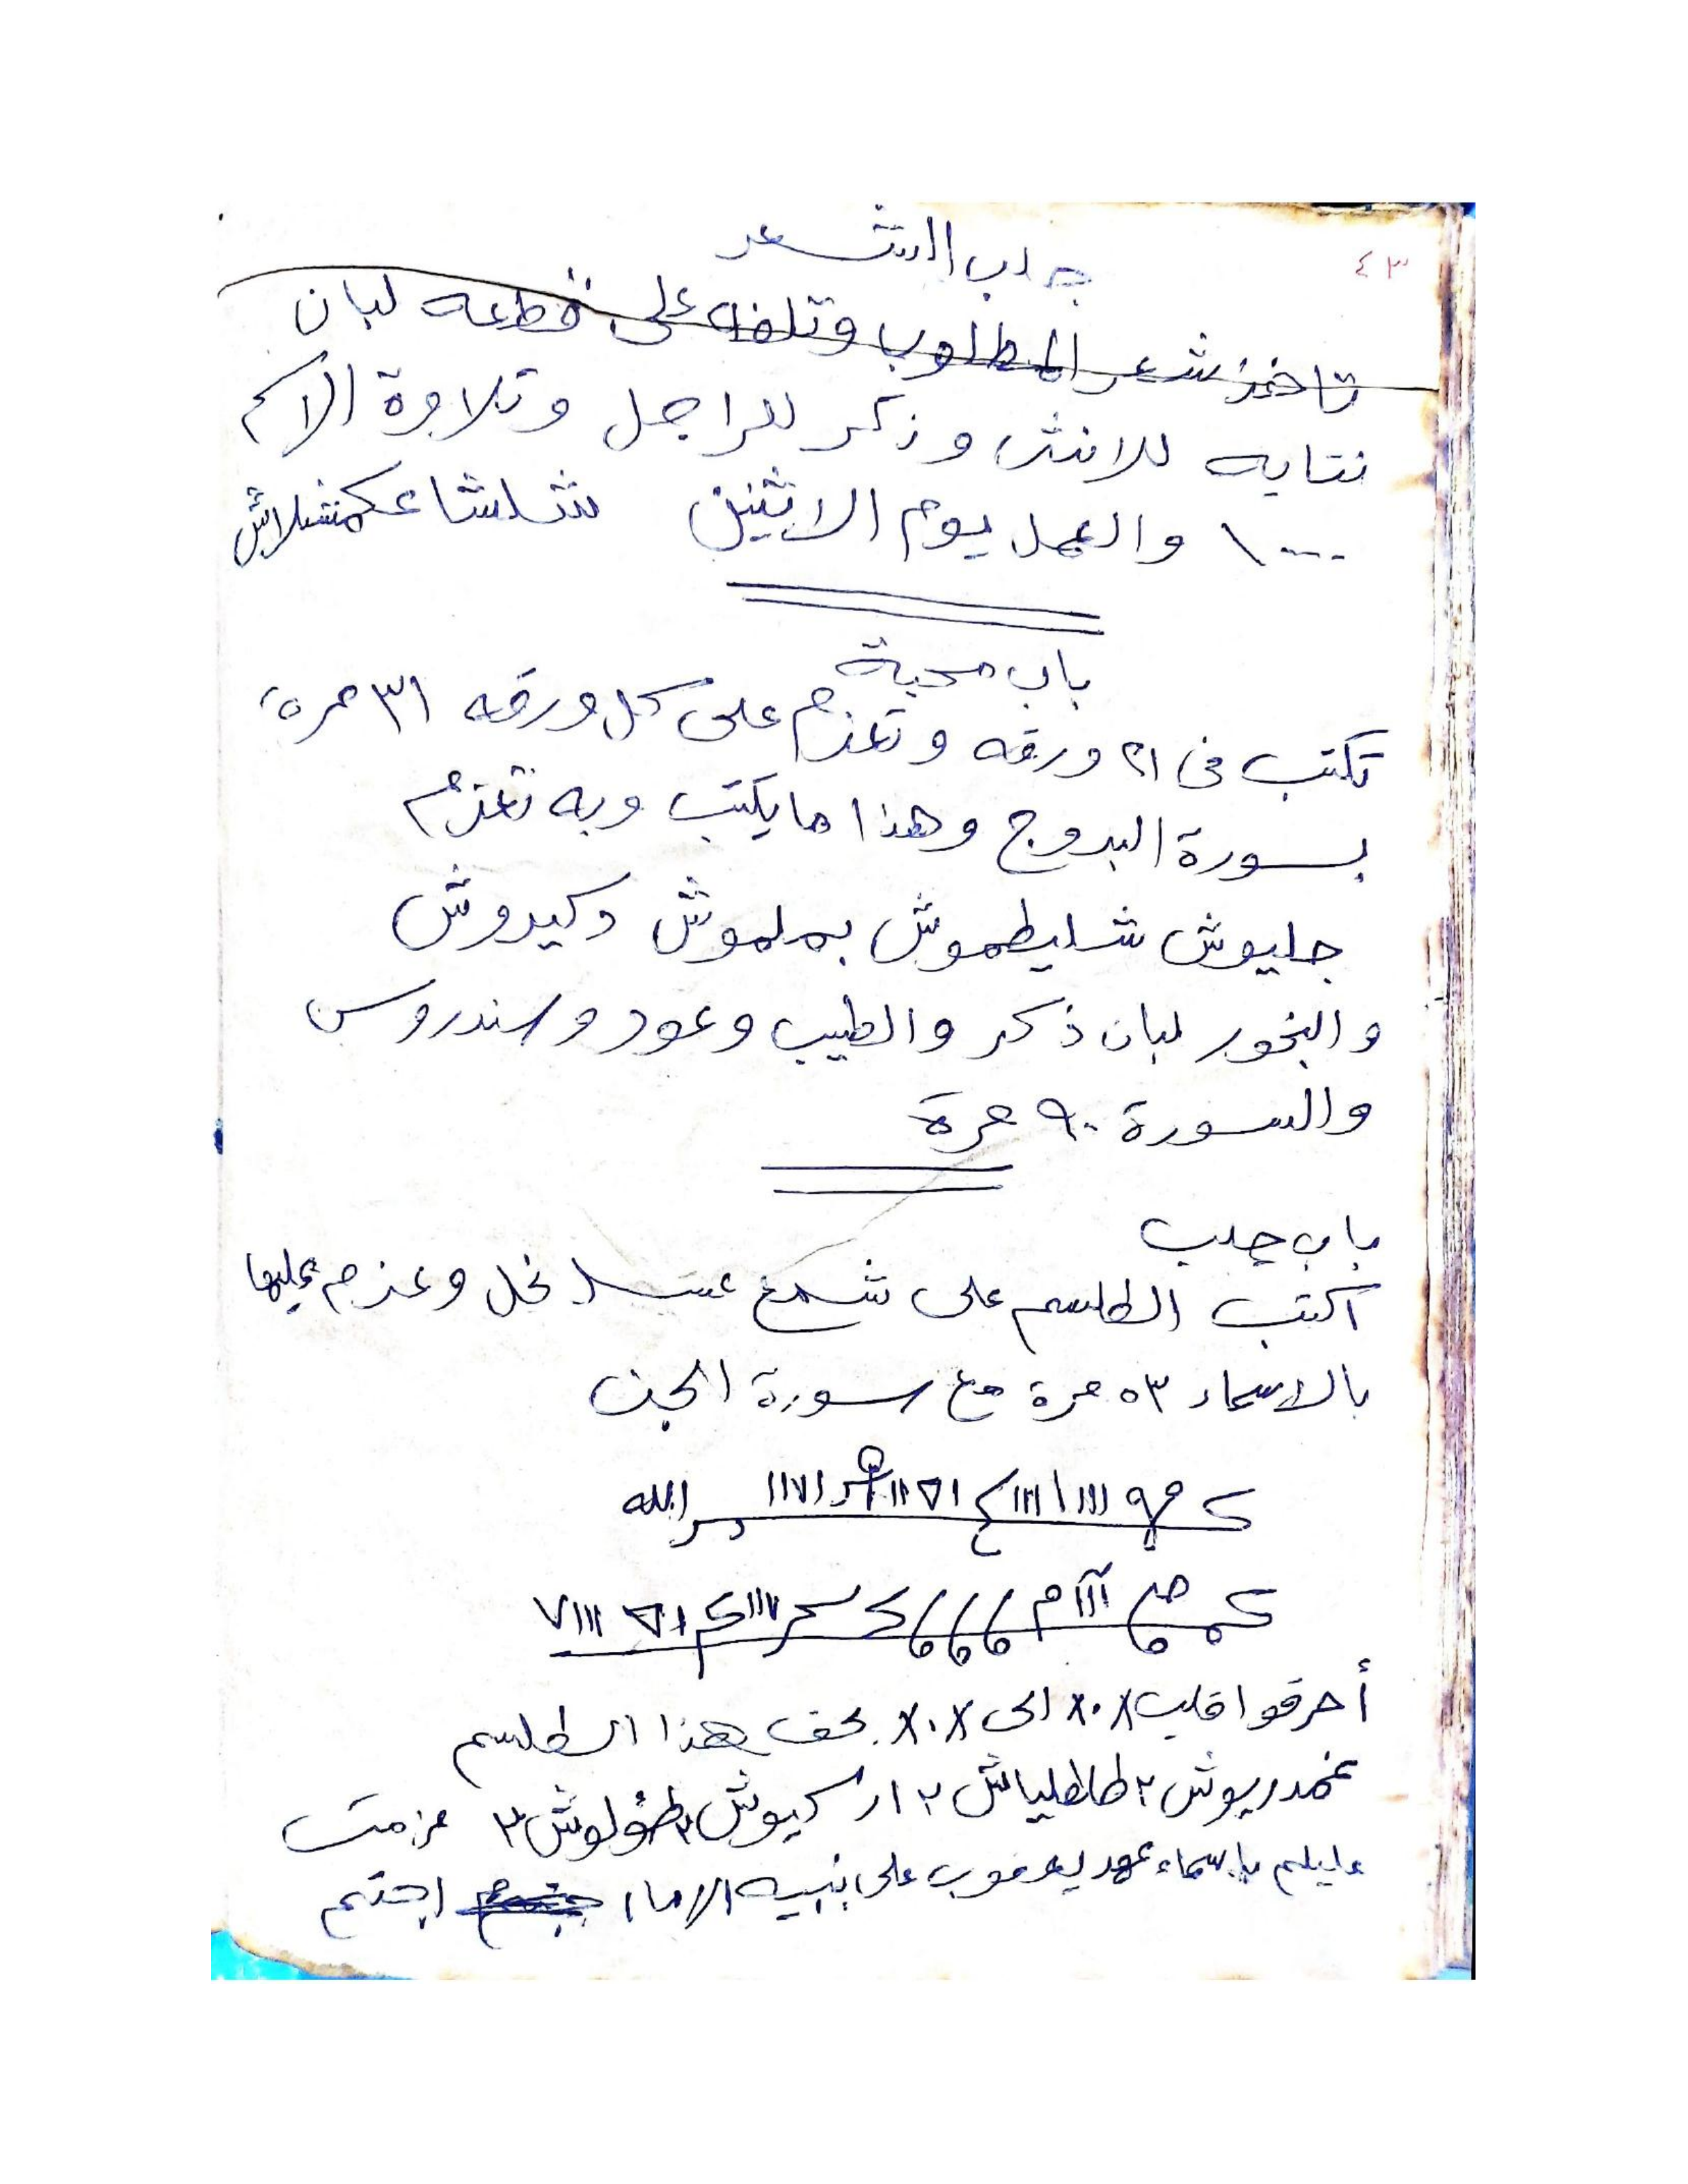 ٤٣
جلب الشعر
تاخذ شعر المطلوب وتلفه على قطعه لبان
نتايه للانثى وذكر للراجل وتلاوة الاسم
١٠٠٠ والعمل يوم الاثنين شلشا عكمشلاش
باب محبة
تكتب فى ٢١ ورقه وتعزم على كل ورقه ٣١ مرة
بسورة البروج وهذا ما يكتب وبه تعزم
جليوش شليطموش بملموش دكيدوش
والبخور لبان ذكر والطيب وعود وسندروس
والسورة ٩٠ مرة
باب جلب
اكتب الطلسم على شمع عسل نحل وعزم عليها
بالاسماء ٥٣ مرة مع سورة الجن
الله
أحرقوا قلب ٨٠٨ الى ٨٠٨ بحق هذا الطلسم
٢ طاطلياش ٢ اركيوش ٢ عزمت
عليكم باسماء عهد يعقوب على بنيه الا ما اجبتم